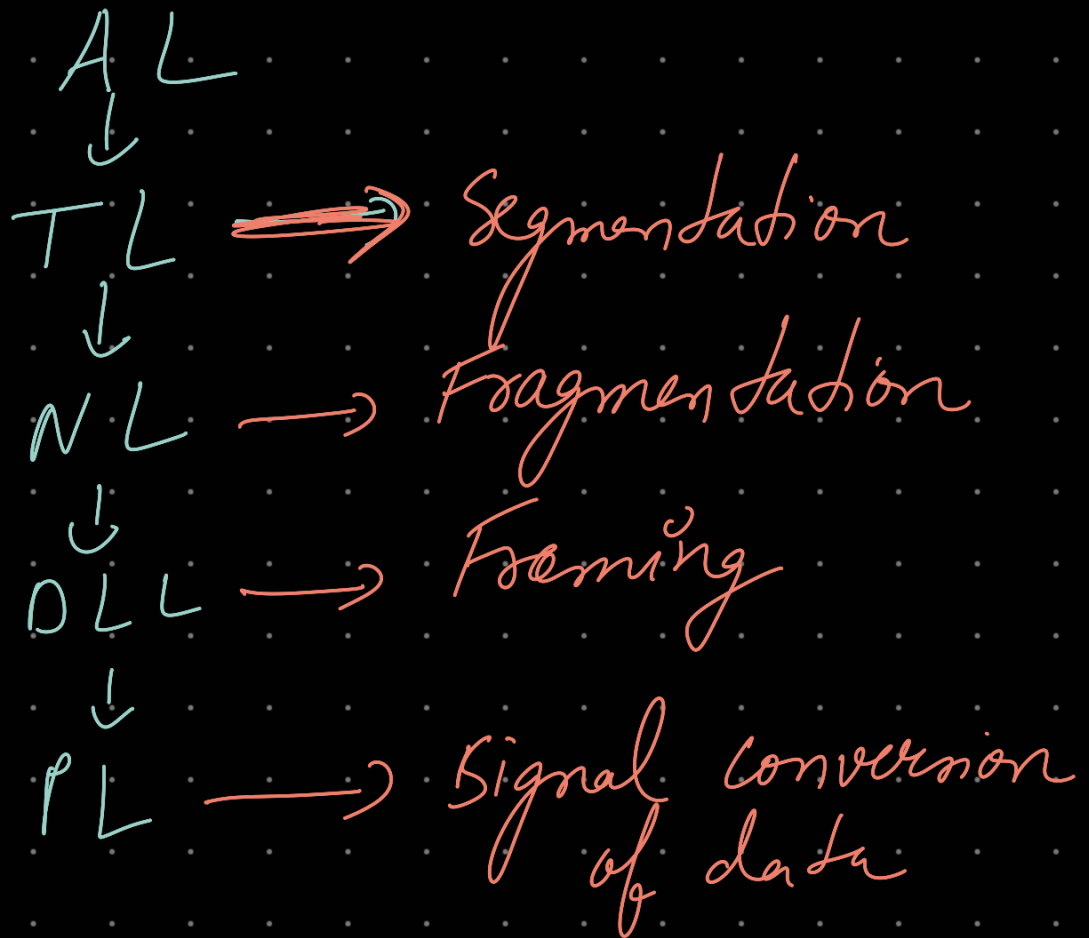 AL
TL Segmentation
NL Fragmentation
DLL Framing
PL Signal conversion
of data